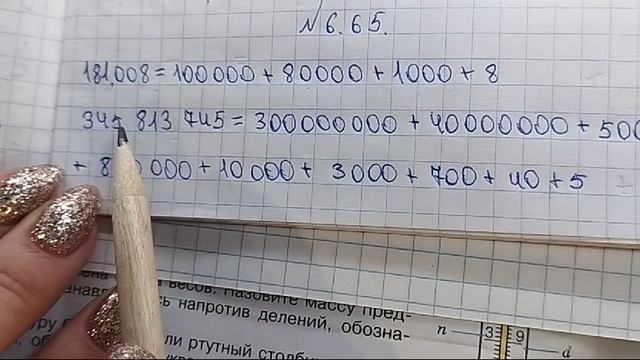 № 6.65.
181.008 = 100 000 + 80000 + 1000 + 8
345 813 745 = 300000000 + 40000000 + 500
+ 8 000 + 10 000 + 3000 + 700 + 40 + 5
весов. Назовите массу пред-
напротив делений, обозна-
ли ртутный столб
n 3 9 d